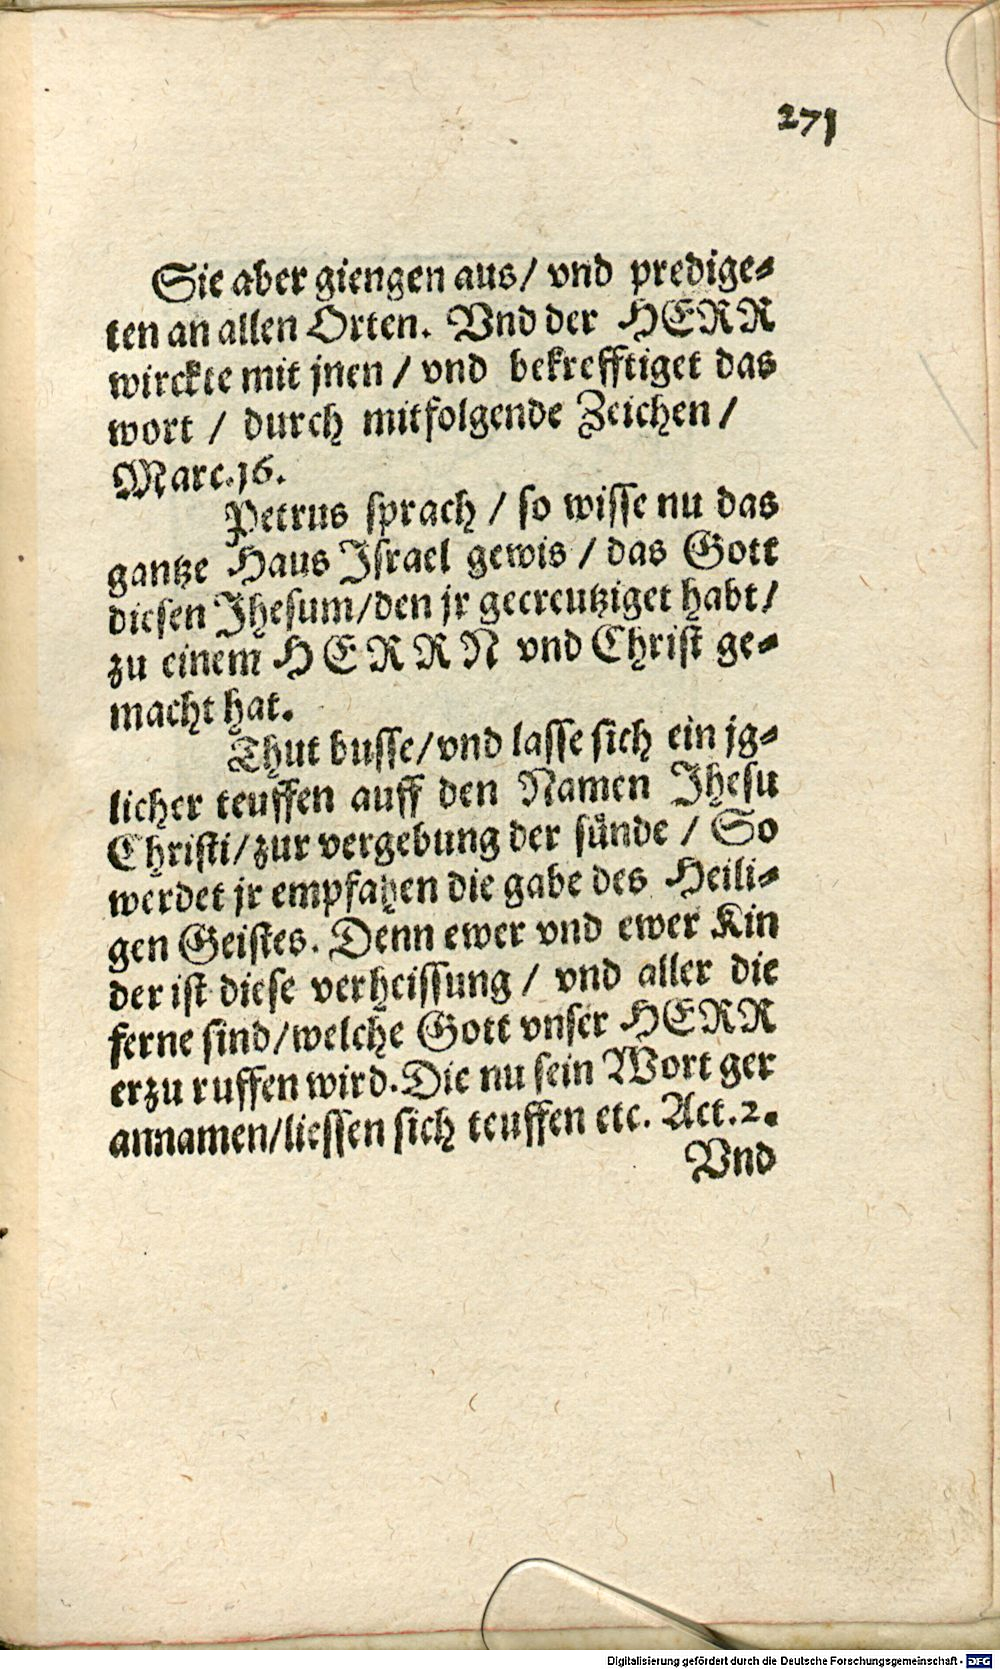 271
Sie aber giengen aus/ vnd predige⸗
ten an allen Orten. Vnd der HERR
wirckte mit jnen / vnd bekrefftiget das
wort / durch mitfolgende Zeichen /
Marc.16.
Petrus sprach / so wisse nu das
gantze Haus Israel gewis / das Gott
diesen Jhesum/den jr gecreutziget habt/
zu einem HERRN vnd Christ ge⸗
macht hat.
Thut busse/vnd lasse sich ein jg⸗
licher teuffen auff den Namen Jhesu
Christi/zur vergebung der sünde / So
werdet jr empfahen die gabe des Heili⸗
gen Geistes. Denn ewer vnd ewer Kin
der ist diese verheissung / vnd aller die
ferne sind/welche Gott vnser HERR
erzu ruffen wird.Die nu sein Wort ger
annamen/liessen sich teuffen etc. Act.2.
Vnd
Digitalisierung gefördert durch die Deutsche Forschungsgemeinschaft - DFG